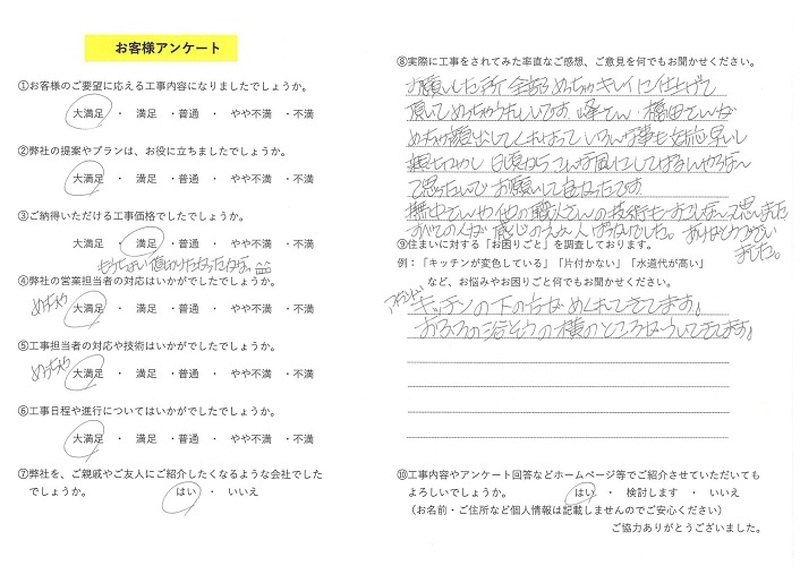 お客様アンケート
①お客様のご要望に応える工事内容になりましたでしょうか。
大満足 ・ 満足 ・普通 ・ やや不満 ・不満
②弊社の提案やプランは、お役に立ちましたでしょうか。
大満足 ・ 満足 ・普通 ・ やや不満 ・不満
③ご納得いただける工事価格でしたでしょうか。
大満足 ・ 満足 ・普通 ・ やや不満 ・不満
もうちょい値切りたかったかな。
④弊社の営業担当者の対応はいかがでしたでしょうか。
めっちゃ 大満足 ・ 満足 ・普通 ・ やや不満 ・不満
⑤工事担当者の対応や技術はいかがでしたでしょうか。
めっちゃ 大満足 ・ 満足 ・普通 ・ やや不満 ・不満
⑥工事日程や進行についてはいかがでしたでしょうか。
大満足 ・ 満足 ・普通 ・ やや不満 ・不満
⑦弊社を、ご親戚やご友人にご紹介したくなるような会社でした
でしょうか。 はい ・ いいえ
⑧実際に工事をされてみた率直なご感想、ご意見を何でもお聞かせください。
お願いした所全部めっちゃキレイに仕上げて
頂いてめっちゃうれしいです。峰さん・橋田さんが
めっちゃ顔出してくれはって いろんな事も対応早いし
親切やし 日頃から こんな風にしてはるんやろなー
て思ったんで お願いして良かったです
さんや他の職人さんの技術もすごいなーって思いました
すべての人が 感じのええ人ばっかでした。ありがとうござい
ました。
⑨住まいに対する「お困りごと」を調査しております。
例：「キッチンが変色している」「片付かない」「水道代が高い」
など、お悩みやお困りごと何でもお聞かせください。
キッチンの下の方がめくれてきてます!
おふろの浴そうの横のところがういてきてます!
⑩工事内容やアンケート回答などホームページ等でご紹介させていただいても
よろしいでしょうか。 はい ・ 検討します ・ いいえ
（お名前・ご住所など個人情報は記載しませんのでご安心ください）
ご協力ありがとうございました。